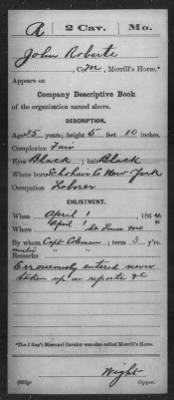 R 2 Cav. Mo.
John Roberts
, Co. M, Merrill's Horse.*
Appears on
Company Descriptive Book
of the organization named above.
DESCRIPTION.
Age 35 years; height 5 feet 10 inches.
Complexion Fair
Eyes Black; hair Black
Where born Schoharie Co New York
Occupation Laborer
ENLISTMENT.
When April 1, 1864.
Where St Louis Mo
By whom Capt Coleman; term 3 y'rs.
Remarks
Erroneously entered never
taken up on reports &c
*The 2 Reg't Missouri Cavalry was also called Merrill's Horse.
Wight
Copyist.